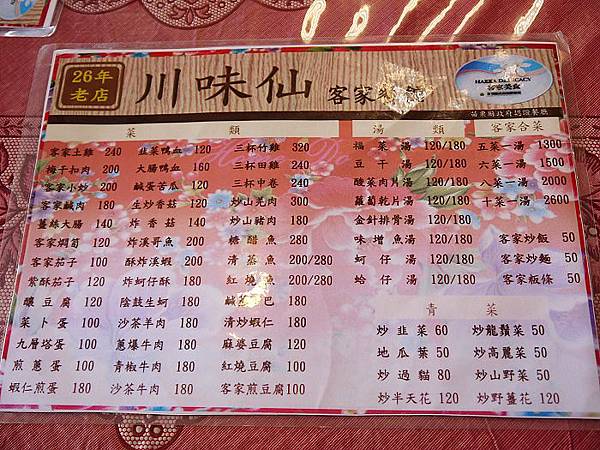 26年
老店
川味仙
客家
HAKKA DELICACY
客家美食
苗栗縣政府認證餐廳
菜 類
湯 類
客家合菜
客家土雞 240
韭菜鴨血 120
三杯竹雞 320
福菜湯 120/180
五菜一湯 1300
梅干扣肉 200
大腸鴨血 160
三杯田雞 240
豆干湯 120/180
六菜一湯 1500
客家小炒 200
鹹蛋苦瓜 120
三杯中卷 240
酸菜肉片湯 120/180
八菜一湯 2000
客家鹹肉 180
生炒香菇 120
炒山羌肉 300
蘿蔔乾片湯 120/180
十菜一湯 2600
薑絲大腸 140
炸香菇 140
炒山豬肉 180
金針排骨湯 120/180
客家燜筍 120
炸溪哥魚 200
糖醋魚 280
味增魚湯 120/180
客家炒飯 50
客家茄子 100
酥炸溪蝦 200
清蒸魚 200/280
蚵仔湯 120/180
客家炒麵 50
紫酥茄子 120
炸蚵仔酥 180
紅燒魚 200/280
蛤仔湯 120/180
客家粄條 50
釀豆腐 120
陰鼓生蚵 180
鹹 巴 180
青菜
菜卜蛋 100
沙茶羊肉 180
清炒蝦仁 180
炒韭菜 60
炒龍鬚菜 50
九層塔蛋 100
蔥爆牛肉 180
麻婆豆腐 120
地瓜葉 50
炒高麗菜 50
煎蔥蛋 100
青椒牛肉 180
紅燒豆腐 100
炒過貓 80
炒山野菜 50
蝦仁煎蛋 180
沙茶牛肉 180
客家煎豆腐 100
炒半天花 120
炒野薑花 120